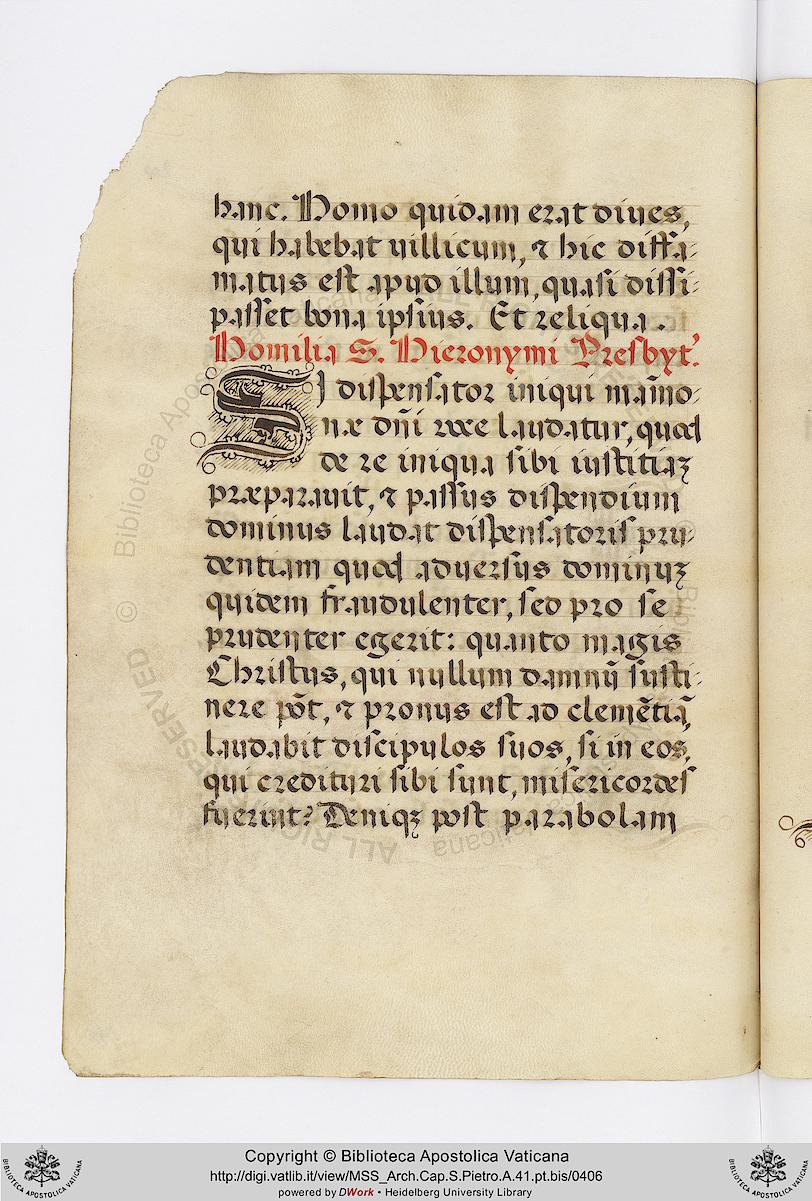 hanc. Homo quidam erat diues,
qui habebat uillicum, & hic diffa-
matus est apud illum, quasi dissi-
passet bona ipsius. Et reliqua.
Homilia S. Hieronymi Presbyt'.
SI dispensator iniqui mam̄o-
næ dn̄i uoce laudatur, quod
de re iniqua sibi iustitiaꝫ
præparauit, & passus dispendium
dominus laudat dispensatoris pru-
dentiam quod aduersus dominuꝫ
quidem fraudulenter, sed pro se
prudenter egerit: quanto magis
Christus, qui nullum damnū susti-
nere pōt, & pronus est ad clemētiā,
laudabit discipulos suos, si in eos,
qui credituri sibi sunt, misericordes
fuerint? Deniqꝫ post parabolam
© Biblioteca Apostolica Vaticana ALL RIGHTS RESERVED
Copyright © Biblioteca Apostolica Vaticana
http://digi.vatlib.it/view/MSS_Arch.Cap.S.Pietro.A.41.pt.bis/0406
powered by DWork • Heidelberg University Library
BIBLIOTECA APOSTOLICA VATICANA
BIBLIOTECA APOSTOLICA VATICANA